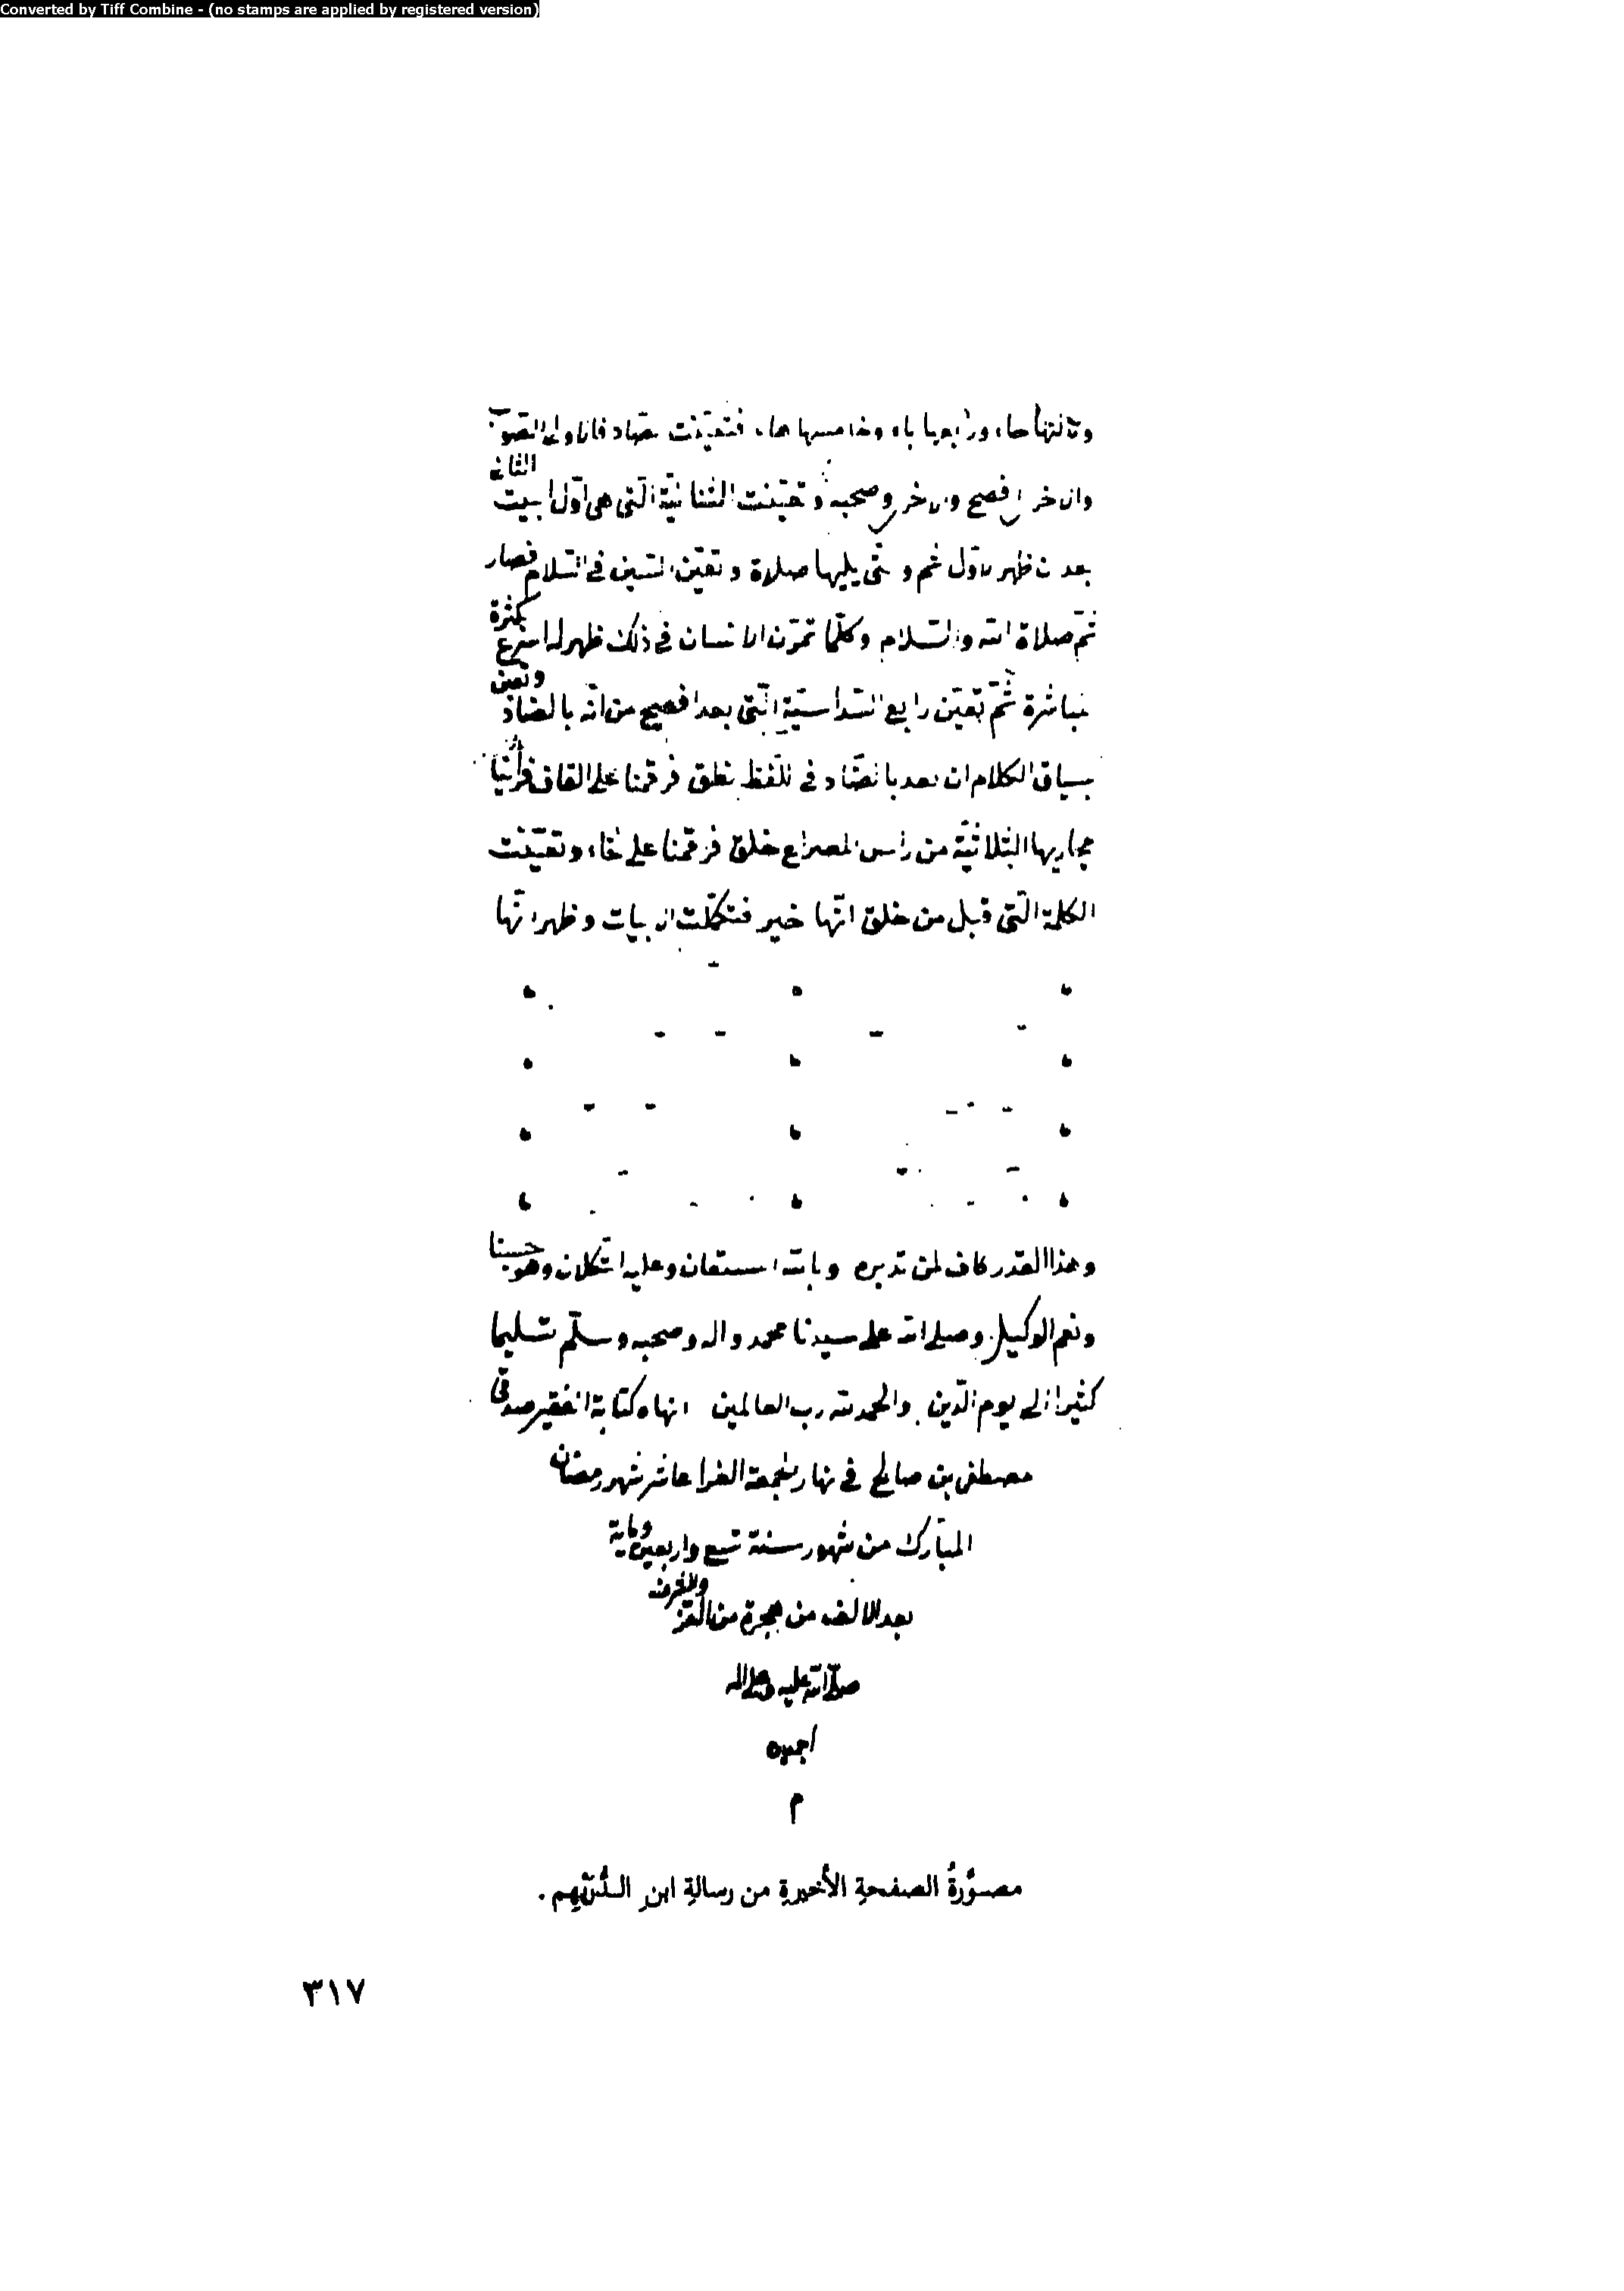 Converted by Tiff Combine - (no stamps are applied by registered version)
وثالثها حاء ورابعها باء وخامسها هاء فتعينت
والاخر افصح والاخر وصحبه وتعينت الثنائية التى هى اول البيت الثانى
بعد ان ظهر الاول ثم و حتى يليها صلاة وتعين السين فى السلام فصار
ثم صلاة الله والسلام وكلما تمرن الانسان فى ذلك ظهر له اسرع بكثرة
مباشرة ثم تعين رابع السداسية التى بعد افصح من انه بالضاد وتعين
سياق الكلام ان بعد بالضاد فى اللفظ نطق فرقمنا على القاف فرأينا
مجاريها الثلاثية من رأس المصراع خلق فرقمنا على خاء وتعينت
الكلمة التى قبل من خلق انها خير فتكملت الابيات وظهر انها
وهذا القدر كاف لمن تدبره وبالله المستعان وعليه التكلان وهو حسبنا
ونعم الوكيل وصلى الله على سيدنا محمد واله وصحبه وسلم تسليما
كثيرا الى يوم الدين والحمد لله رب العالمين انهاه كتابة الفقير صدقى
مصطفى بن صالح فى نهار الجمعة الغرا عاشر شهر رمضان
المبارك من شهور سنة تسع واربعين وماية
بعد الالف من هجرة من له العز والشرف
صلى الله عليه وعلى اله
اجمعين
م
مصوَّرةُ الصفحةِ الأخيرةِ من رسالةِ ابنِ الدُّرَيْهِم .
٣١٧